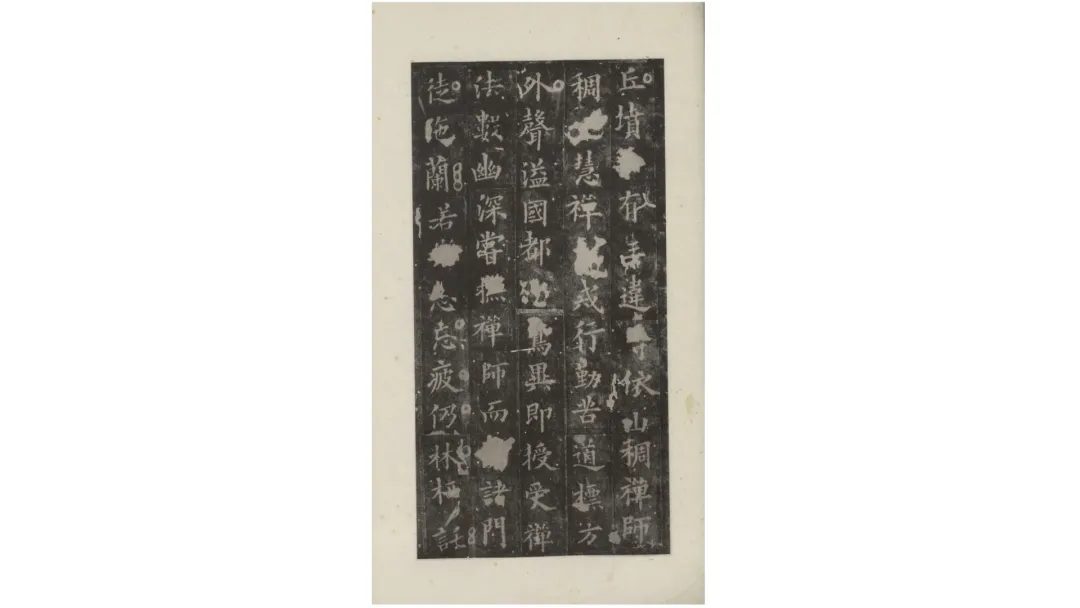 丘墳郁違依山稠禪師
稠慧禪戒行勤苦道撫方
外聲溢國都焉異即授受禪
法數幽深嘗撫禪師而諸門
徒施蘭若忘疲仍林栖託